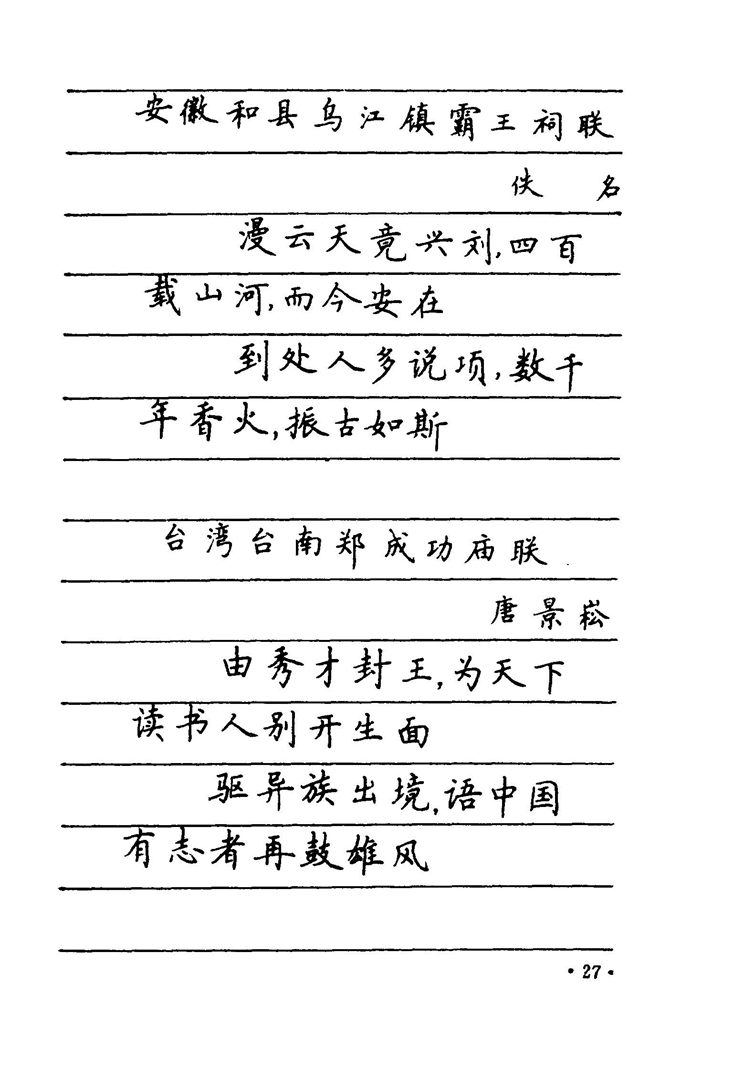 安徽和县乌江镇霸王祠联
佚 名
漫云天竟兴刘,四百
载山河,而今安在
到处人多说项,数千
年香火,振古如斯
台湾台南郑成功庙联
唐景崧
由秀才封王,为天下
读书人别开生面
驱异族出境,语中国
有志者再鼓雄风
·27·